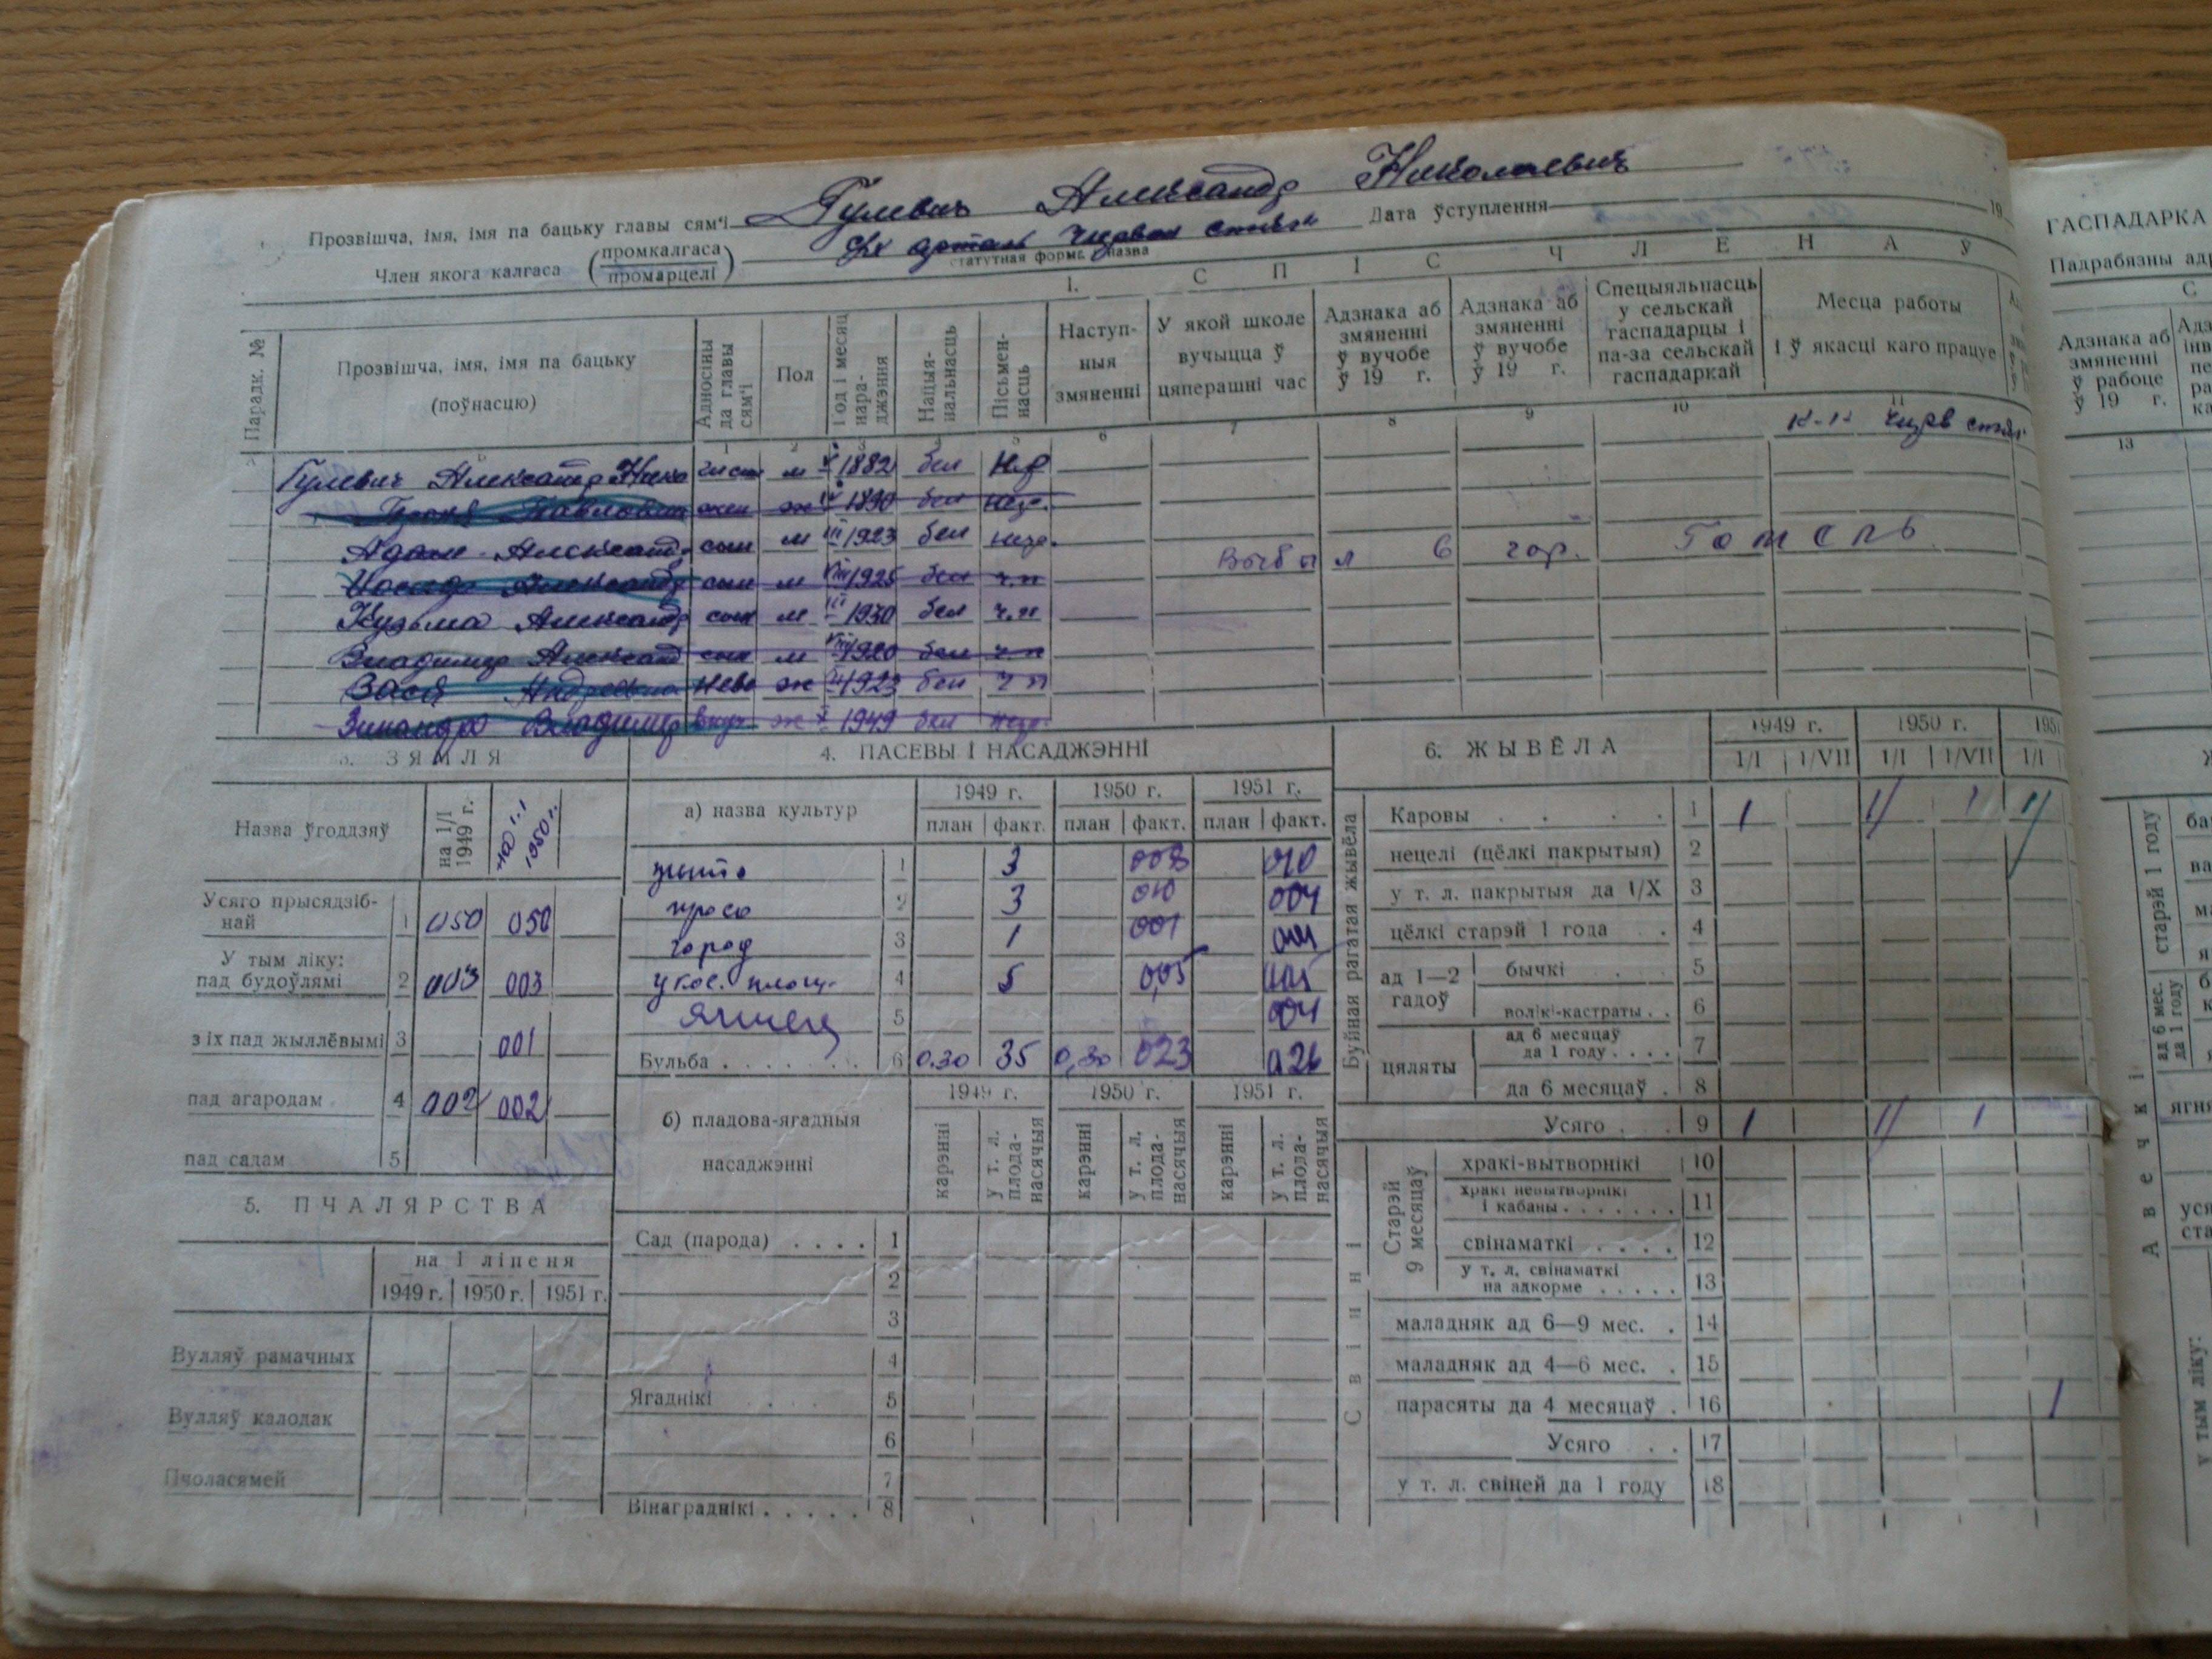 Прозвішча, імя, імя па бацьку главы сям'і Гулевич Александр Николаевич
Член якога калгаса (промкалгаса / промарцелі) Дата ўступлення 19
статутная форма, назва
1. С П І С Ч Л Е Н А Ў
Парадк. №
Прозвішча, імя, імя па бацьку (поўнасцю)
Адносіны да главы сям'і
Пол
Год і месяц нараджэння
Нацыянальнасць
Пісьменнасць
Наступныя змяненні
У якой школе вучыцца ў цяперашні час
Адзнака аб змяненні ў вучобе ў 19 г.
Адзнака аб змяненні ў вучобе ў 19 г.
Спецыяльнасць у сельскай гаспадарцы і па-за сельскай гаспадаркай
Месца работы і ў якасці каго працуе
1 2 3 4 5 6 7 8 9 10 11
Гулевич Александр Нико м 1882 бел
ж 1890 бел негр.
Адам Александ. сын м III 1923 бел негр.
Александр сын м VIII 1925 бел ч.п
Выбыл 6 гор. Гомель
Кузьма Александр сын м III 1930 бел ч.п
Владимир Александ сын м VIII 1920 бел ч.п
Андреевна неве ж 1923 бел ч п
Владимир внуч ж 1949 бел негр.
3. ЗЯМЛЯ
Назва ўгоддзяў
на 1/I 1949 г.
на 1.1 1950 г.
Усяго прысядзібнай 1 050 050
У тым ліку:
пад будоўлямі 2 003 003
з іх пад жыллёвымі 3 001
пад агародам 4 002 002
пад садам 5
5. ПЧАЛЯРСТВА
на 1 ліпеня
1949 г. 1950 г. 1951 г.
Вулляў рамачных
Вулляў калодак
Пчоласямей
4. ПАСЕВЫ І НАСАДЖЭННІ
а) назва культур
1949 г. 1950 г. 1951 г.
план факт. план факт. план факт.
жыто 1 3 008 010
просо 2 3 010 004
город 3 1 001
укос. площ. 4 5 0,05
ячмень 5 004
Бульба 6 0.30 35 0,30 023 026
б) пладова-ягадныя насаджэнні
1949 г. 1950 г. 1951 г.
карэнні
у т. л. пладанасячыя
карэнні
у т. л. пладанасячыя
карэнні
у т. л. пладанасячыя
Сад (парода) . . . . 1
2
3
4
Ягаднікі . . . . 5
6
7
Вінаграднікі . . . . . 8
6. ЖЫВЁЛА
1949 г. 1950 г. 1951
1/I 1/VII 1/I 1/VII 1/I
Буйная рагатая жывёла
Каровы . . . . 1 1
нецелі (цёлкі пакрытыя) 2
у т. л. пакрытыя да 1/X 3
цёлкі старэй 1 года . . 4
ад 1—2 гадоў
бычкі . 5
волікі-кастраты . . 6
цяляты
ад 6 месяцаў да 1 году . . . . 7
да 6 месяцаў . 8
Усяго . . 9 1 1
Свінні
Старэй 9 месяцаў
хракі-вытворнікі 10
хракі невытворнікі і кабаны . . . . . . . 11
свінаматкі . . . . 12
у т. л. свінаматкі на адкорме . . . . . 13
маладняк ад 6—9 мес. . 14
маладняк ад 4—6 мес. . 15
парасяты да 4 месяцаў . 16 1
Усяго . . 17
у т. л. свіней да 1 году 18
ГАСПАДАРКА
Падрабязны
С
Адзнака аб змяненні ў рабоце ў 19 г.
13
Авечкі
старэй 1 году
ад 6 мес. да 1 году
у тым ліку: